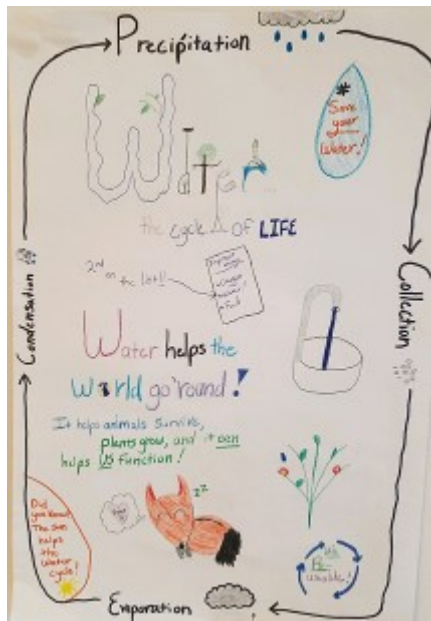 Precipitation
# Save
your
Water!
the cycle of LIFE
2nd
on
the list!!
Condensation
Collection
Water helps the
World go'round!
It helps animals survive,
plants grow, and it even
helps US function!
zz
Did
you know?
The sun
helps
the
water
cycle!
Evaporation